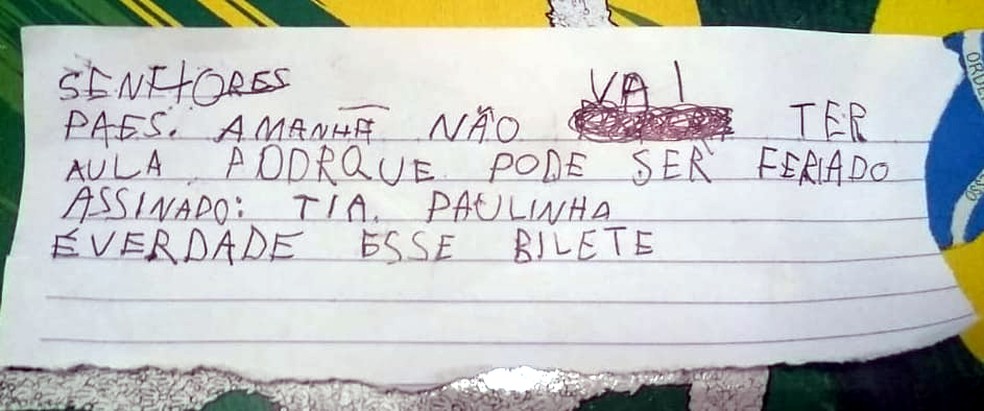 SENHORES
PAES. AMANHÃ NÃO VAI TER
AULA PODRQUE PODE SER FERIADO
ASSINADO: TIA. PAULINHA
ÉVERDADE ESSE BILETE
ORDE